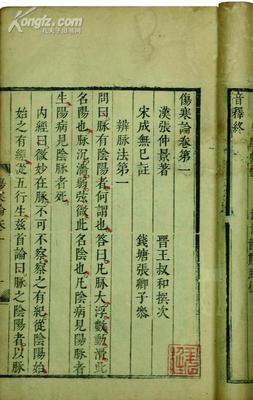 傷寒論卷第一
漢張仲景著
晉王叔和撰次
宋成無已註
錢塘張卿子參
辨脉法第一
問曰脉有陰陽者何謂也答曰凡脉大浮數動滑此
名陽也脉沉濇弱弦微此名陰也凡陰病見陽脉者
生陽病見陰脉者死
內經曰微妙在脉不可不察察之有紀從陰陽始
始之有經從五行生兹首論曰脉之陰陽者以脉
傷寒論卷一
音釋終